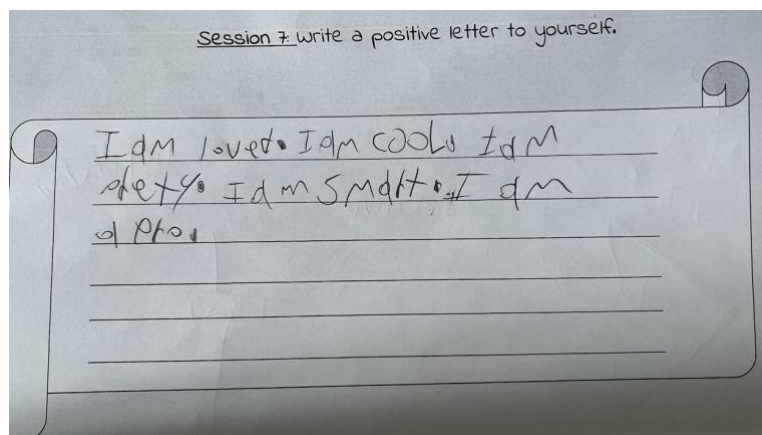 Session 7 write a positive letter to yourself.
I am loved. I am cool. I am
prety. I am smart. I am
a pro.